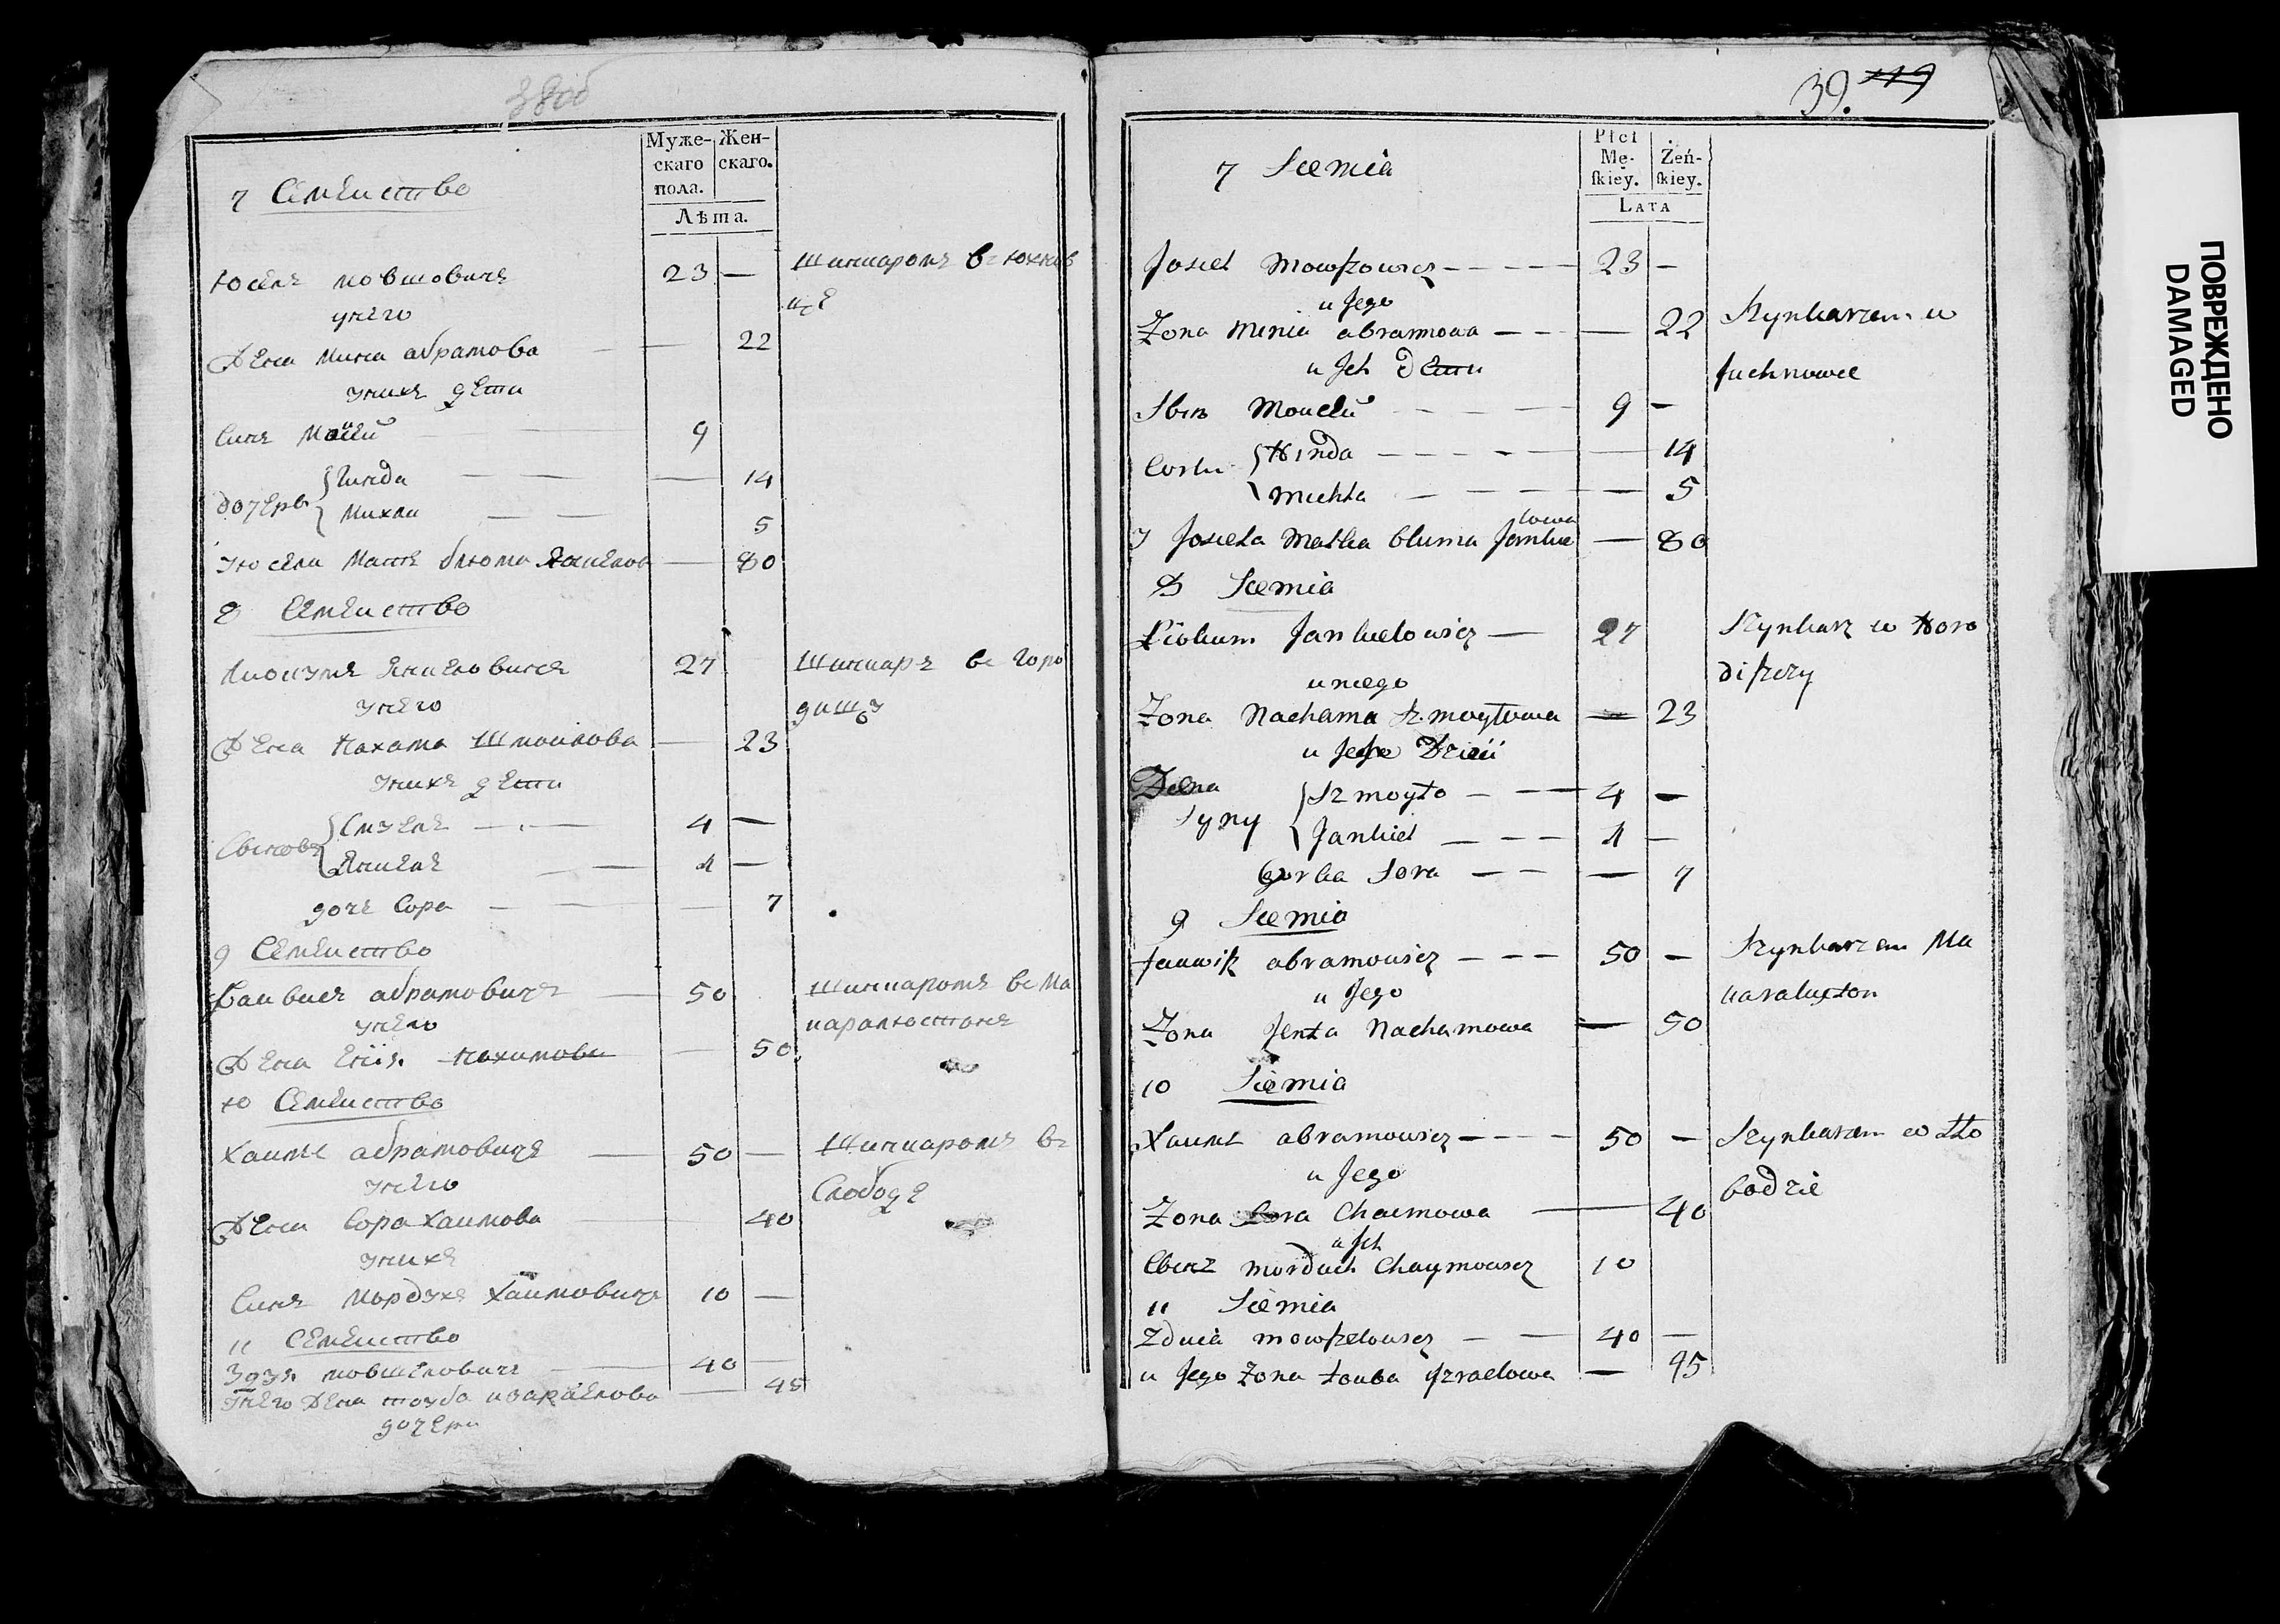 38об
7 Семѣиство
Муже-
скаго
пола.
Жен-
скаго.
Лѣта.
Юсель мовшовичъ 23 — Шинкаромъ въ Юхнов
унего цѣ
Жена Мина абрамова — — 22
унихъ дѣти
Синъ Моисеи 9
дочерѣ { Гинда — — — 14
Михли — — 5
у Юселя Матъ блюма Янкелов — 80
8 Семѣиство
Лиокумъ Янкеловичъ 27 Шинкаръ въ Горо
унего дищу
Жена Нахама Шмоилова — 23
унихъ дѣти
Сыновя { Смуель — — 4 —
Янкель — 1 —
дочъ Сора — — — 7
9 Семѣиство
абрамовичъ — 50 Шинкаромъ въ Ма
унего каралюстонъ
Жена Нахимова — 50
10 Семѣиство
Хаимъ абрамовичъ — 50 — Шинкаромъ въ
унего Слободѣ
Жена Сора Хаимова — 40
унихъ
Синъ Мордухъ Хаимовичъ 10 —
11 Семѣиство
Зудя мовшеловичъ — 40 —
унего Жена тоуба изараелова — 45
дочери
39. 119
7 Siemia
Płci
Mę-
skiey.
Żeń-
skiey.
LATA
Josiel Mowszowicz - - - - 23 -
u Jego
Zona Minia abramowa - - — 22 Szynkarzem w
u Jch дети Juchnowce
Sbin Mouckū - - - 9 -
Corki { Hinda - - - - — 14
Michla - - - — 5
У Josiela Matka bluma Jankie lowa — 80
8 Siemia
Liokum Jankielowicz — 27 Szynkarz w Horo
u niego diszczy
Zona Nachama Szmoyłowa — 23
u Jego Dzieci
Syny { Szmoyło - - 4 —
Jankiel - - - 1 —
Corka Sora - - — 7
9 Siemia
abramowicz - - - 50 — Szynkarzem Ma
u Jego karaluszton
Zona Jenta Nachamowa — 50
10 Siemia
Xaimł abramowicz - - - - 50 — Szynkarzem w Sło
u Jego bodzie
Zona Sora Chaimowa — 40
u Jch
Morduch Chaymowicz 10
11 Siemia
Zduia mowszelowicz - — 40 —
u Jego Zona touba Jzraelowa — 45
ПОВРЕЖДЕНО
DAMAGED